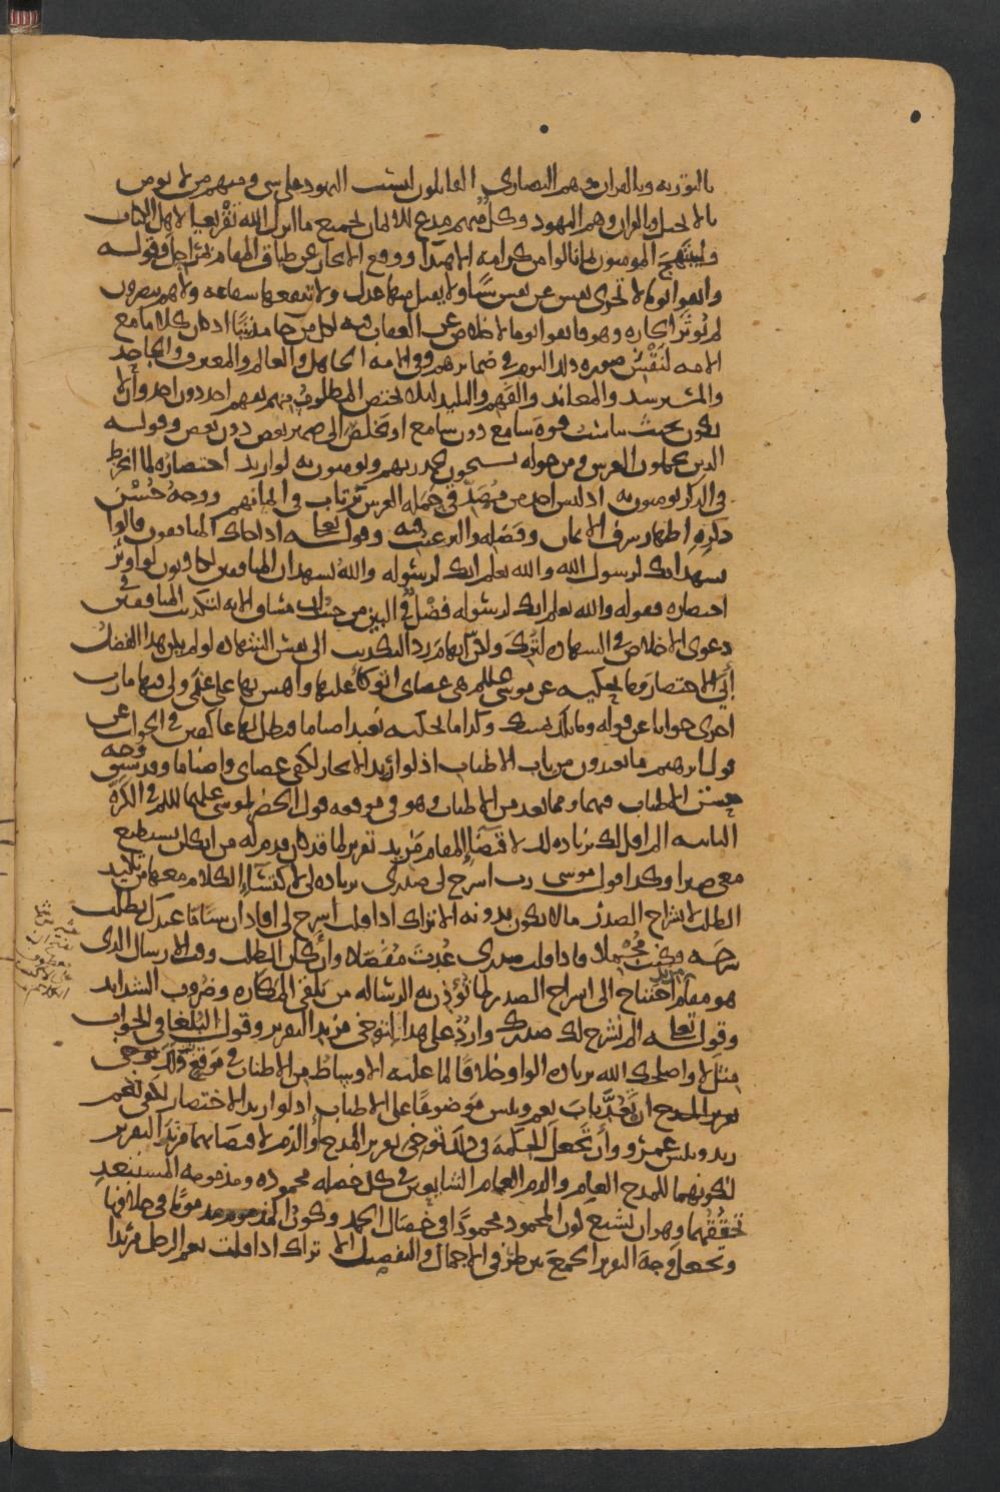 بالتوريه وبالقران وهم النصارى القايلون ليست اليهود على شي ومنهم من لا يومن
بالانجيل والقران وهم اليهود وكل منهم مدع للايمان بجميع ما انزل الله تقريعا لاهل الكتاب
وليبتهج المومنون بما نالوا من كرامه الاهتدا ووقع الايجاز عن طباق المقام بمراحل وقوله
واتقوا يوما لا تجزى نفس عن نفس شيا ولا يقبل منها عدل ولا تنفعها شفاعه ولا هم ينصرون
لم يوثر ايجازه وهو فاتقوا يوما لا خلاص عن العقاب فيه لكل من جا مذنبا اذ كان كلاما مع
الامه لنقش صوره ذلك اليوم في ضمايرهم وفي الامه الجاهل والعالم والمعترف والجاحد
والمسترشد والمعاند والفهم والبليد ليلا يختص المطلوب منهم بفهم احد دون احد وان لا
يكون بحيث يناسب قوة سامع دون سامع او يخلص الى ضمير بعض دون بعض وقوله
الذين يحملون العرش ومن حوله يسبحون بحمد ربهم ويومنون به لو اريد اختصاره لما انخرط
في الذكر يومنون به اذ ليس احد من مصدقي حمله العرش يرتاب في ايمانهم ووجه حسن
ذكره اظهار شرف الايمان وفضله والترغيب فيه وقوله تعالى اذا جاك المنافقون قالوا
نشهد انك لرسول الله والله يعلم انك لرسوله والله يشهد ان المنافقين لكاذبون لو اوثر
اختصاره فقوله والله يعلم انك لرسوله فضل في البين من حيث ان مساق الايه لتكذيب المنافقين في
دعوى الاخلاص في الشهاده لترك ولكن ايهام رد التكذيب الى نفس الشهاده لو لم يكن هذا الفضل
أبى الاختصار ومما يحكيه عن موسى عليه السلم هي عصاي اتوكأ عليها واهش بها على غنمي ولي فيها مارب
اخرى جوابا عن قوله وما تلك بيمينك وكذا ما يحكيه نعبد اصناما فنظل لها عاكفين في الجواب عن
قول ابرهيم ما تعبدون من باب الاطناب اذ لو اريد الايجاز لكفى عصاي واصناما وقد سبق وجه
حسن الاطناب فيهما ومما يعد من الاطناب وهو في موقعه قول الخضر لموسى عليهما السلم في الكرة
الثانيه الم اقل لك بزياده لك لاقتضا المقام مزيد تقرير لما قد كان قدم له من انك لن تستطيع
معي صبرا وكذا قول موسى رب اشرح لي صدري بزياده لي لاكتساء الكلام معها من تاكيد
الطلب لانشراح الصدر ما لا يكون بدونه الا تراك اذا قلت اشرح لي افاد ان شيا ما عندك تطلب
شرحه وكنت مجملا فاذا قلت صدري عدت مفصلا وان كان الطلب وقت الارسال الذي
هو مقام مزيد احتياج الى انشراح الصدر لما تؤذن به الرساله من تلقي المكاره وضروب الشدايد
وقوله تعالى الم نشرح لك صدرك وارد على هذا التوخي مزيد التقرير وقول البلغا في الجواب
مثل لا واصلحك الله بزياده الواو خلافا لما عليه الاوساط من الاطناب في موقع ذلك توخى
تقرير المدح ان تعد باب نعم وبيس موضوعا على الاطناب اذ لو اريد الاختصار لكفى نعم
زيد وبيس عمرو وان تجعل الحكمه في ذلك توخي تقرير المدح والذم لاقتضايهما مزيد التقرير
لكونهما للمدح العام والذم العام الشايعين في كل خصله محموده ومذمومه المستبعد
تحققهما وهو ان يشيع كون المحمود محمودا في خصال الحمد وكون المذموم مذموما في خلافها
وتجعل وجه التقرير الجمع بين طرفي الاجمال والتفصيل الا تراك اذا قلت نعم الرجل مريدا